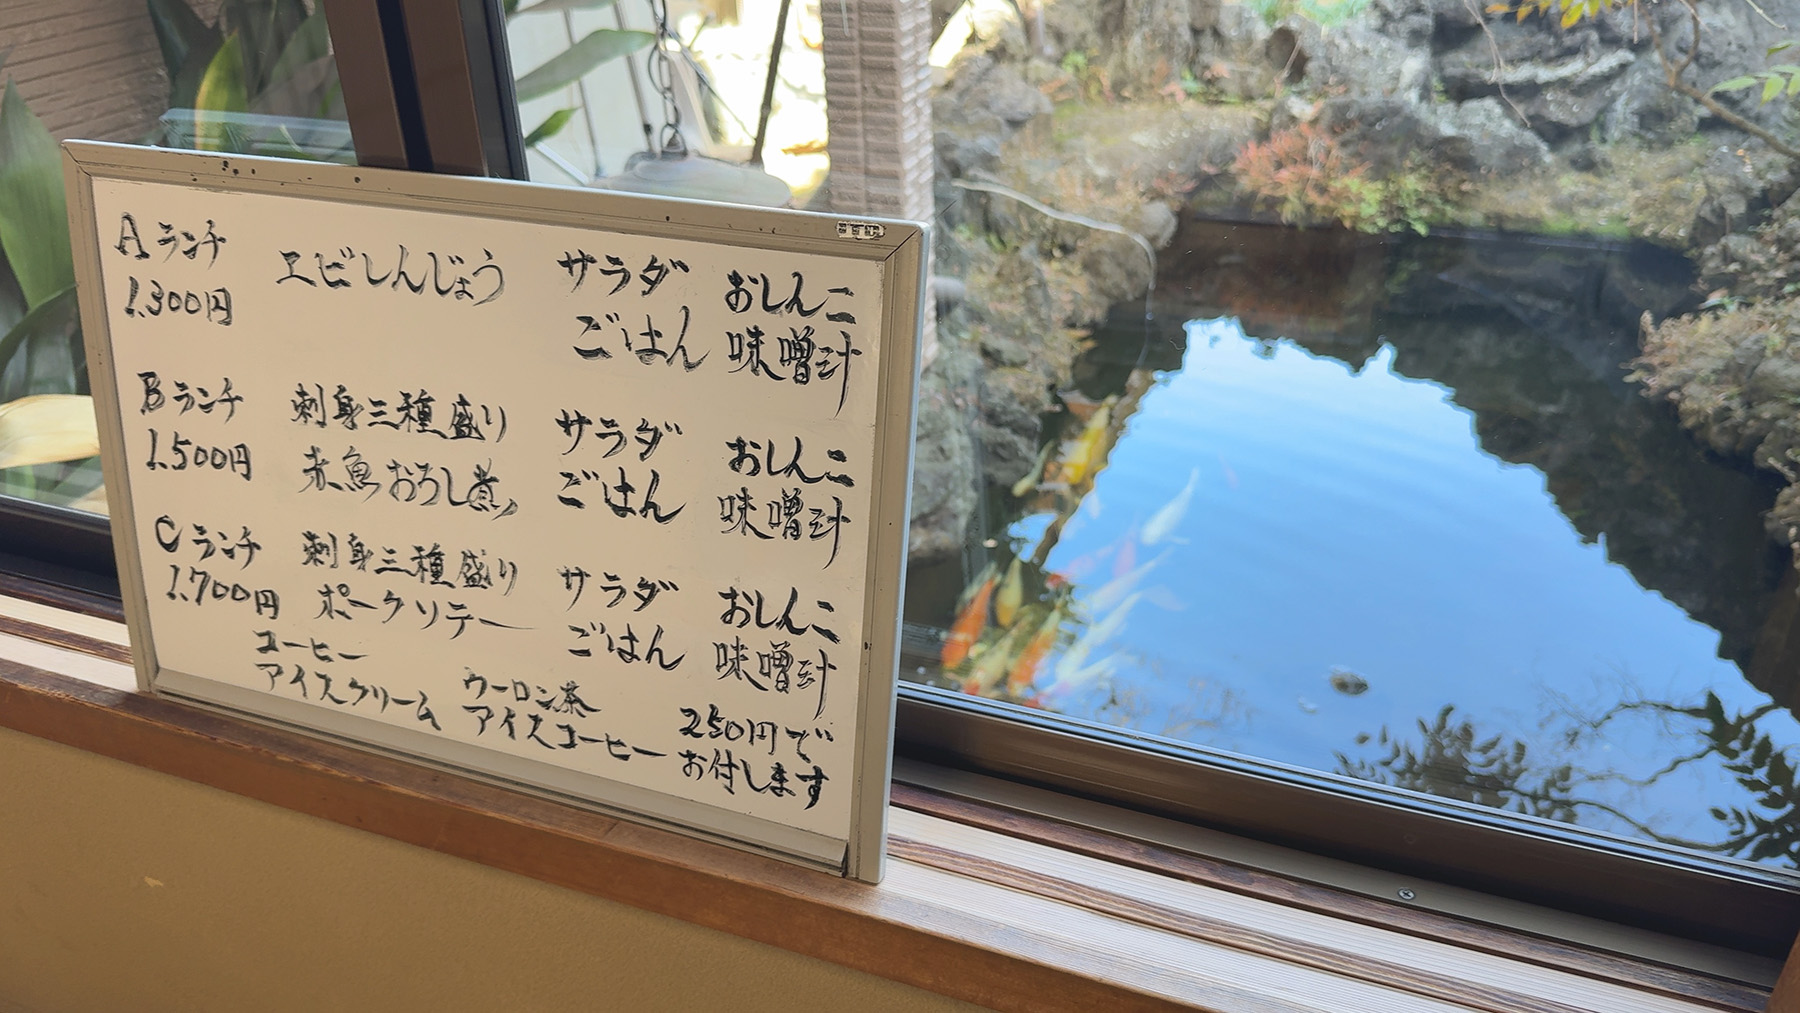 Aランチ エビしんじょう サラダ おしんこ
1.300円 ごはん 味噌汁
Bランチ 刺身三種盛り サラダ おしんこ
1.500円 赤魚おろし煮 ごはん 味噌汁
Cランチ 刺身三種盛り サラダ おしんこ
1.700円 ポークソテー ごはん 味噌汁
コーヒー ウーロン茶 250円で
アイスクリーム アイスコーヒー お付します